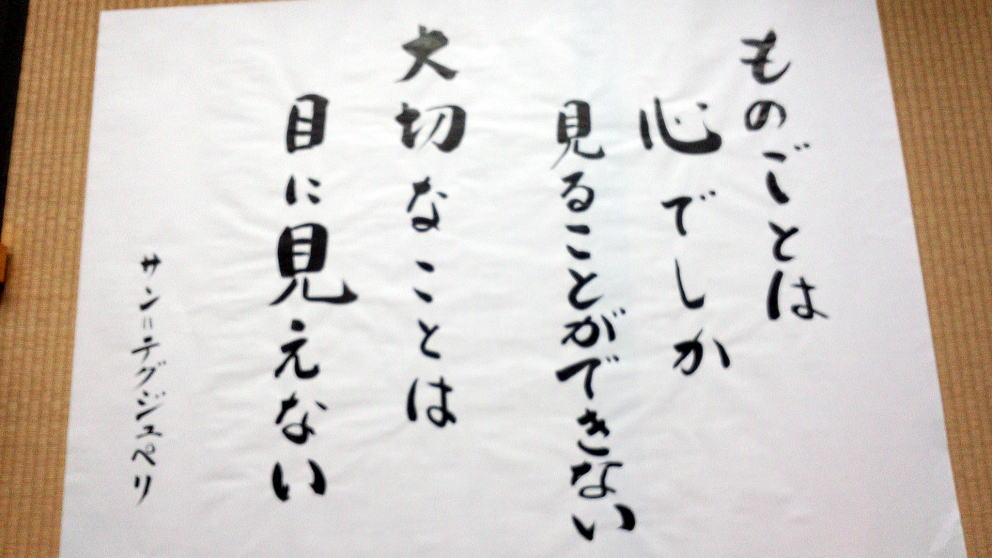 ものごとは
心でしか
見ることができない
大切なことは
目に見えない
サン=テグジュペリ